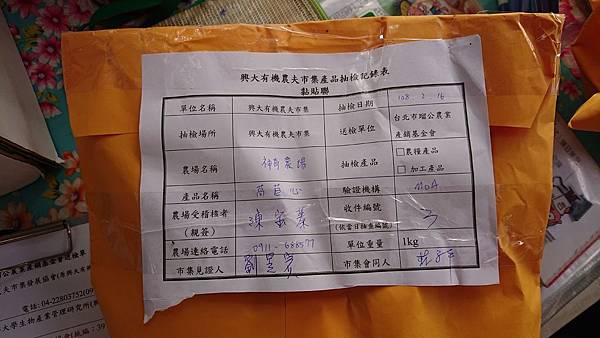 興大有機農夫市集產品抽檢記錄表
黏貼聯
單位名稱 興大有機農夫市集 抽檢日期 108. 2. 16
抽檢場所 興大有機農夫市集 送檢單位 台北市瑠公農業產銷基金會
農場名稱 抽檢產品 □農糧產品
□ 加工產品
產品名稱 萵苣心 驗證機構 MOA
農場受稽核者 收件編號 3
(親簽) (依當日抽查編號)
農場連絡電話 0911-688577 單位重量 1kg
市集見證人 市集會同人
公農業產銷基金會送檢單
電話:04-22803752(09
大學生物產業管理研究所(